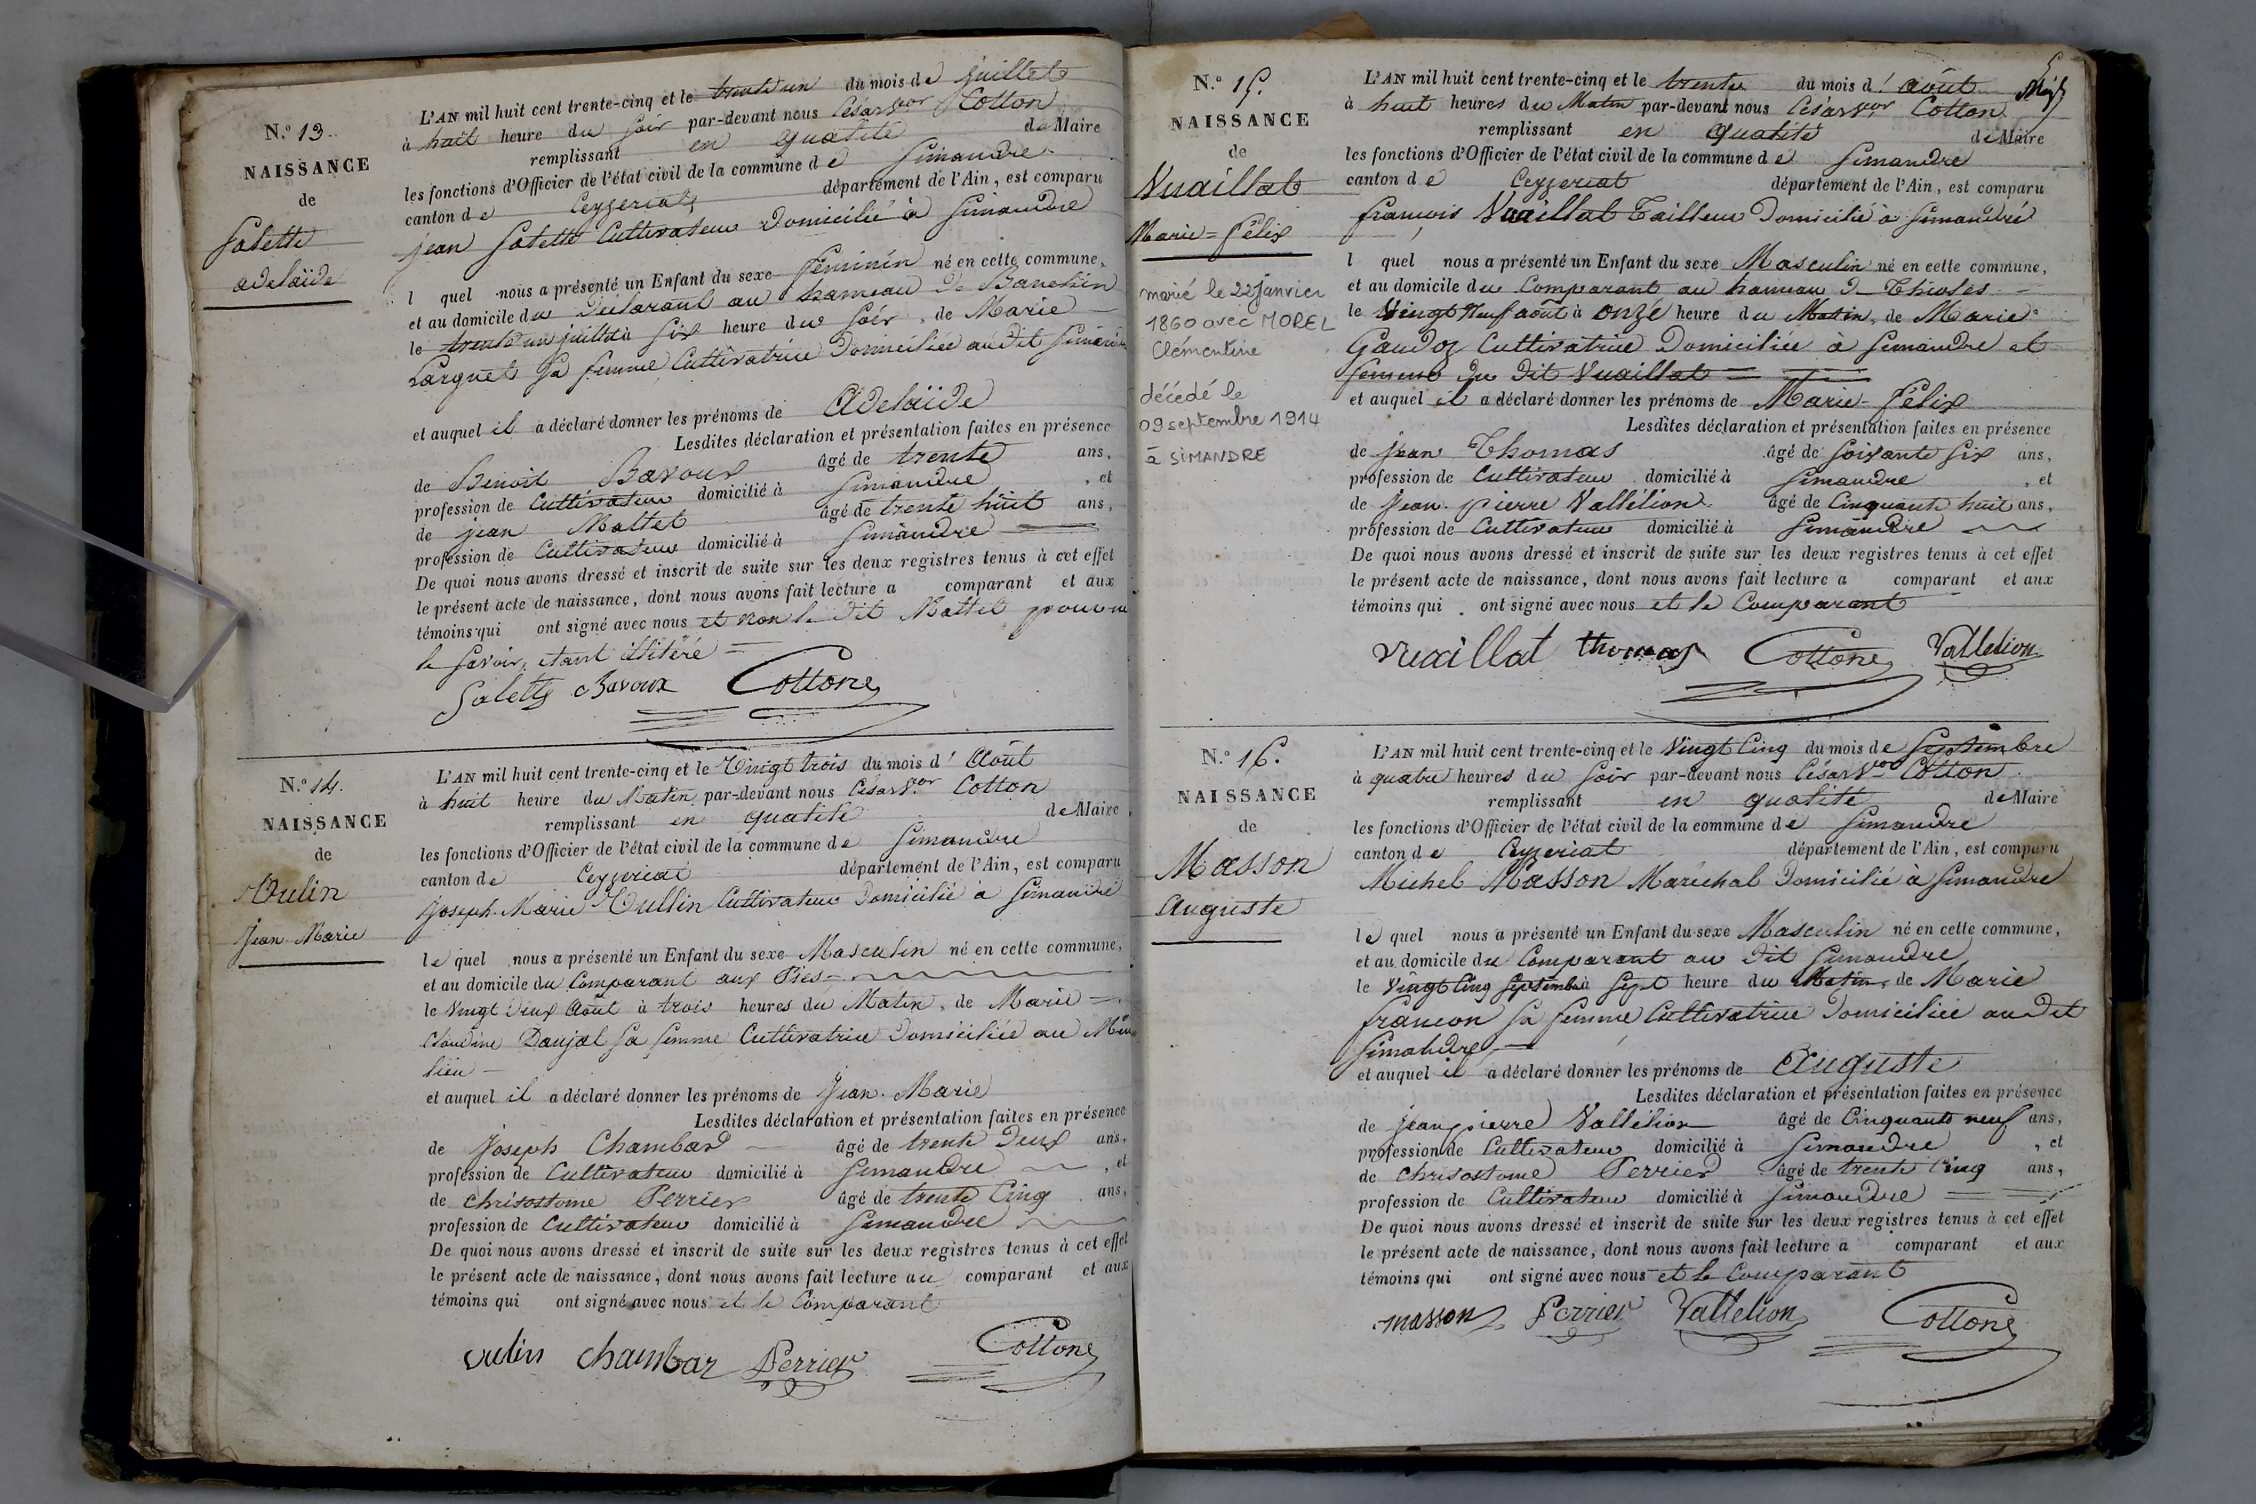 N.° 13.
NAISSANCE
de
Salette
adelaïde
L'AN mil huit cent trente-cinq et le trente un du mois de juillet
à huit heure du soir par-devant nous César Vor Cotton
remplissant en qualité de Maire
les fonctions d'Officier de l'état civil de la commune de Simandre
canton de Ceyzeriat département de l'Ain, est comparu
jean Salette Cultivateur Domicilié à Simandre
l quel nous a présenté un Enfant du sexe Féminin né en cette commune,
et au domicile du Déclarant au hameau de Banchin
le trente un juillet à six heure du soir, de Marie
Larguet sa femme Cultivatrice Domiciliée au dit Simandre
et auquel il a déclaré donner les prénoms de Adelaïde
Lesdites déclaration et présentation faites en présence
de Benoit Bavoux âgé de trente ans,
profession de Cultivateur domicilié à Simandre, et
de jean Mattet âgé de trente huit ans,
profession de Cultivateur domicilié à Simandre
De quoi nous avons dressé et inscrit de suite sur les deux registres tenus à cet effet
le présent acte de naissance, dont nous avons fait lecture a comparant et aux
témoins qui ont signé avec nous et non le dit Mattet pour ne
le savoir, étant illitéré
Salette Bavoux Cottone
N.° 14.
NAISSANCE
de
Vulin
Jean-Marie
L'AN mil huit cent trente-cinq et le Vingt trois du mois d' Août
à huit heure du Matin par-devant nous César Vor Cotton
remplissant en qualité de Maire
les fonctions d'Officier de l'état civil de la commune de Simandre
canton de Ceyzeriat département de l'Ain, est comparu
Joseph-Marie Vullin Cultivateur Domicilié à Simandre
le quel nous a présenté un Enfant du sexe Masculin né en cette commune,
et au domicile du Comparant aux
le Vingt Deux Août à trois heures du Matin, de Marie
Claudine Daujat sa femme Cultivatrice Domiciliée au Même
lieu
et auquel il a déclaré donner les prénoms de Jean-Marie
Lesdites déclaration et présentation faites en présence
de Joseph Chambard âgé de trente Deux ans,
profession de Cultivateur domicilié à Simandre, et
de Chrisostome Perrier âgé de trente Cinq ans,
profession de Cultivateur domicilié à Simandre
De quoi nous avons dressé et inscrit de suite sur les deux registres tenus à cet effet
le présent acte de naissance, dont nous avons fait lecture au comparant et aux
témoins qui ont signé avec nous et le Comparant
vulin chambar Perrier Cottone
5
N.° 15.
NAISSANCE
de
Vuaillat
Marie=Félix
marié le 22 janvier
1860 avec MOREL
Clémentine
décédé le
09 septembre 1914
à SIMANDRE
L'AN mil huit cent trente-cinq et le trente du mois d' août
à huit heures du Matin par-devant nous César Vor Cotton
remplissant en qualité de Maire
les fonctions d'Officier de l'état civil de la commune de Simandre
canton de Ceyzeriat département de l'Ain, est comparu
françois Vuaillat Tailleur Domicilié à Simandre
l quel nous a présenté un Enfant du sexe Masculin né en cette commune,
et au domicile du Comparant au hameau de Thioles
le Vingt Neuf août à onze heure du Matin, de Marie
Gaudoz Cultivatrice Domiciliée à Simandre et
femme du dit Vuaillat
et auquel il a déclaré donner les prénoms de Marie-Félix
Lesdites déclaration et présentation faites en présence
de jean Thomas âgé de Soixante Six ans,
profession de Cultivateur domicilié à Simandre, et
de jean pierre Vallélion âgé de Cinquante huit ans,
profession de Cultivateur domicilié à Simandre
De quoi nous avons dressé et inscrit de suite sur les deux registres tenus à cet effet
le présent acte de naissance, dont nous avons fait lecture a comparant et aux
témoins qui ont signé avec nous et le Comparant
Vuaillat thomas Cottone Vallelion
N.° 16.
NAISSANCE
de
Masson
Auguste
L'AN mil huit cent trente-cinq et le Vingt Cinq du mois de Septembre
à quatre heures du Soir par-devant nous César Vor Cotton
remplissant en qualité de Maire
les fonctions d'Officier de l'état civil de la commune de Simandre
canton de Ceyzeriat département de l'Ain, est comparu
Michel Masson Maréchal Domicilié à Simandre
le quel nous a présenté un Enfant du sexe Masculin né en cette commune,
et au domicile du Comparant au Dit Simandre
le Vingt Cinq Septembre à Sept heure du Matin, de Marie
francon sa femme Cultivatrice Domiciliée au Dit
Simandre
et auquel il a déclaré donner les prénoms de Auguste
Lesdites déclaration et présentation faites en présence
de jean pierre Vallélion âgé de Cinquante neuf ans,
profession de Cultivateur domicilié à Simandre, et
de Chrisostome Perrier âgé de trente Cinq ans,
profession de Cultivateur domicilié à Simandre
De quoi nous avons dressé et inscrit de suite sur les deux registres tenus à cet effet
le présent acte de naissance, dont nous avons fait lecture a comparant et aux
témoins qui ont signé avec nous et le Comparant
masson Perrier Vallelion Cottone